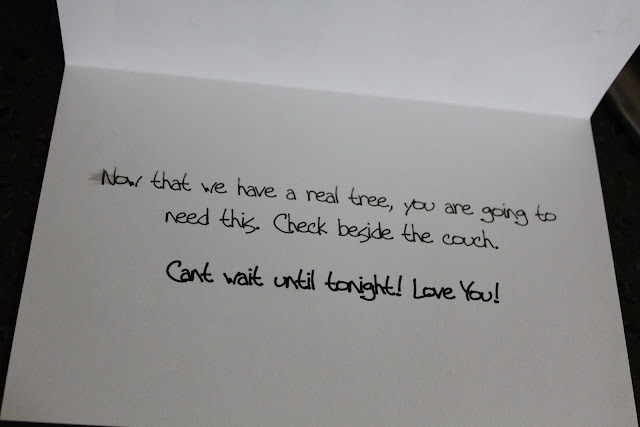 Now that we have a real tree, you are going to
need this. Check beside the couch.
Cant wait until tonight! Love You!